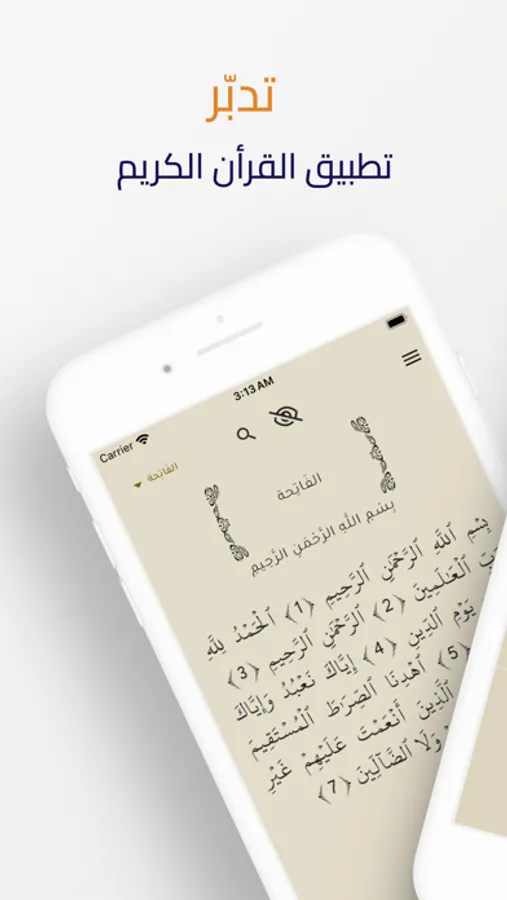 تدبّر
تطبيق القرأن الكريم
3:13 AM
Carrier
الفَاتِحة
الفَاتِحة
بِسْمِ اللَّهِ الرَّحْمَنِ الرَّحِيمِ
بِسْمِ ٱللَّهِ ٱلرَّحْمَٰنِ ٱلرَّحِيمِ ﴿1﴾ ٱلْحَمْدُ لِلَّهِ
ٱلْعَٰلَمِينَ ﴿2﴾ ٱلرَّحْمَٰنِ ٱلرَّحِيمِ ﴿3﴾
يَوْمِ ٱلدِّينِ ﴿4﴾ إِيَّاكَ نَعْبُدُ وَإِيَّاكَ
﴿5﴾ ٱهْدِنَا ٱلصِّرَٰطَ ٱلْمُسْتَقِيمَ
ٱلَّذِينَ أَنْعَمْتَ عَلَيْهِمْ غَيْرِ
وَلَا ٱلضَّآلِّينَ ﴿7﴾